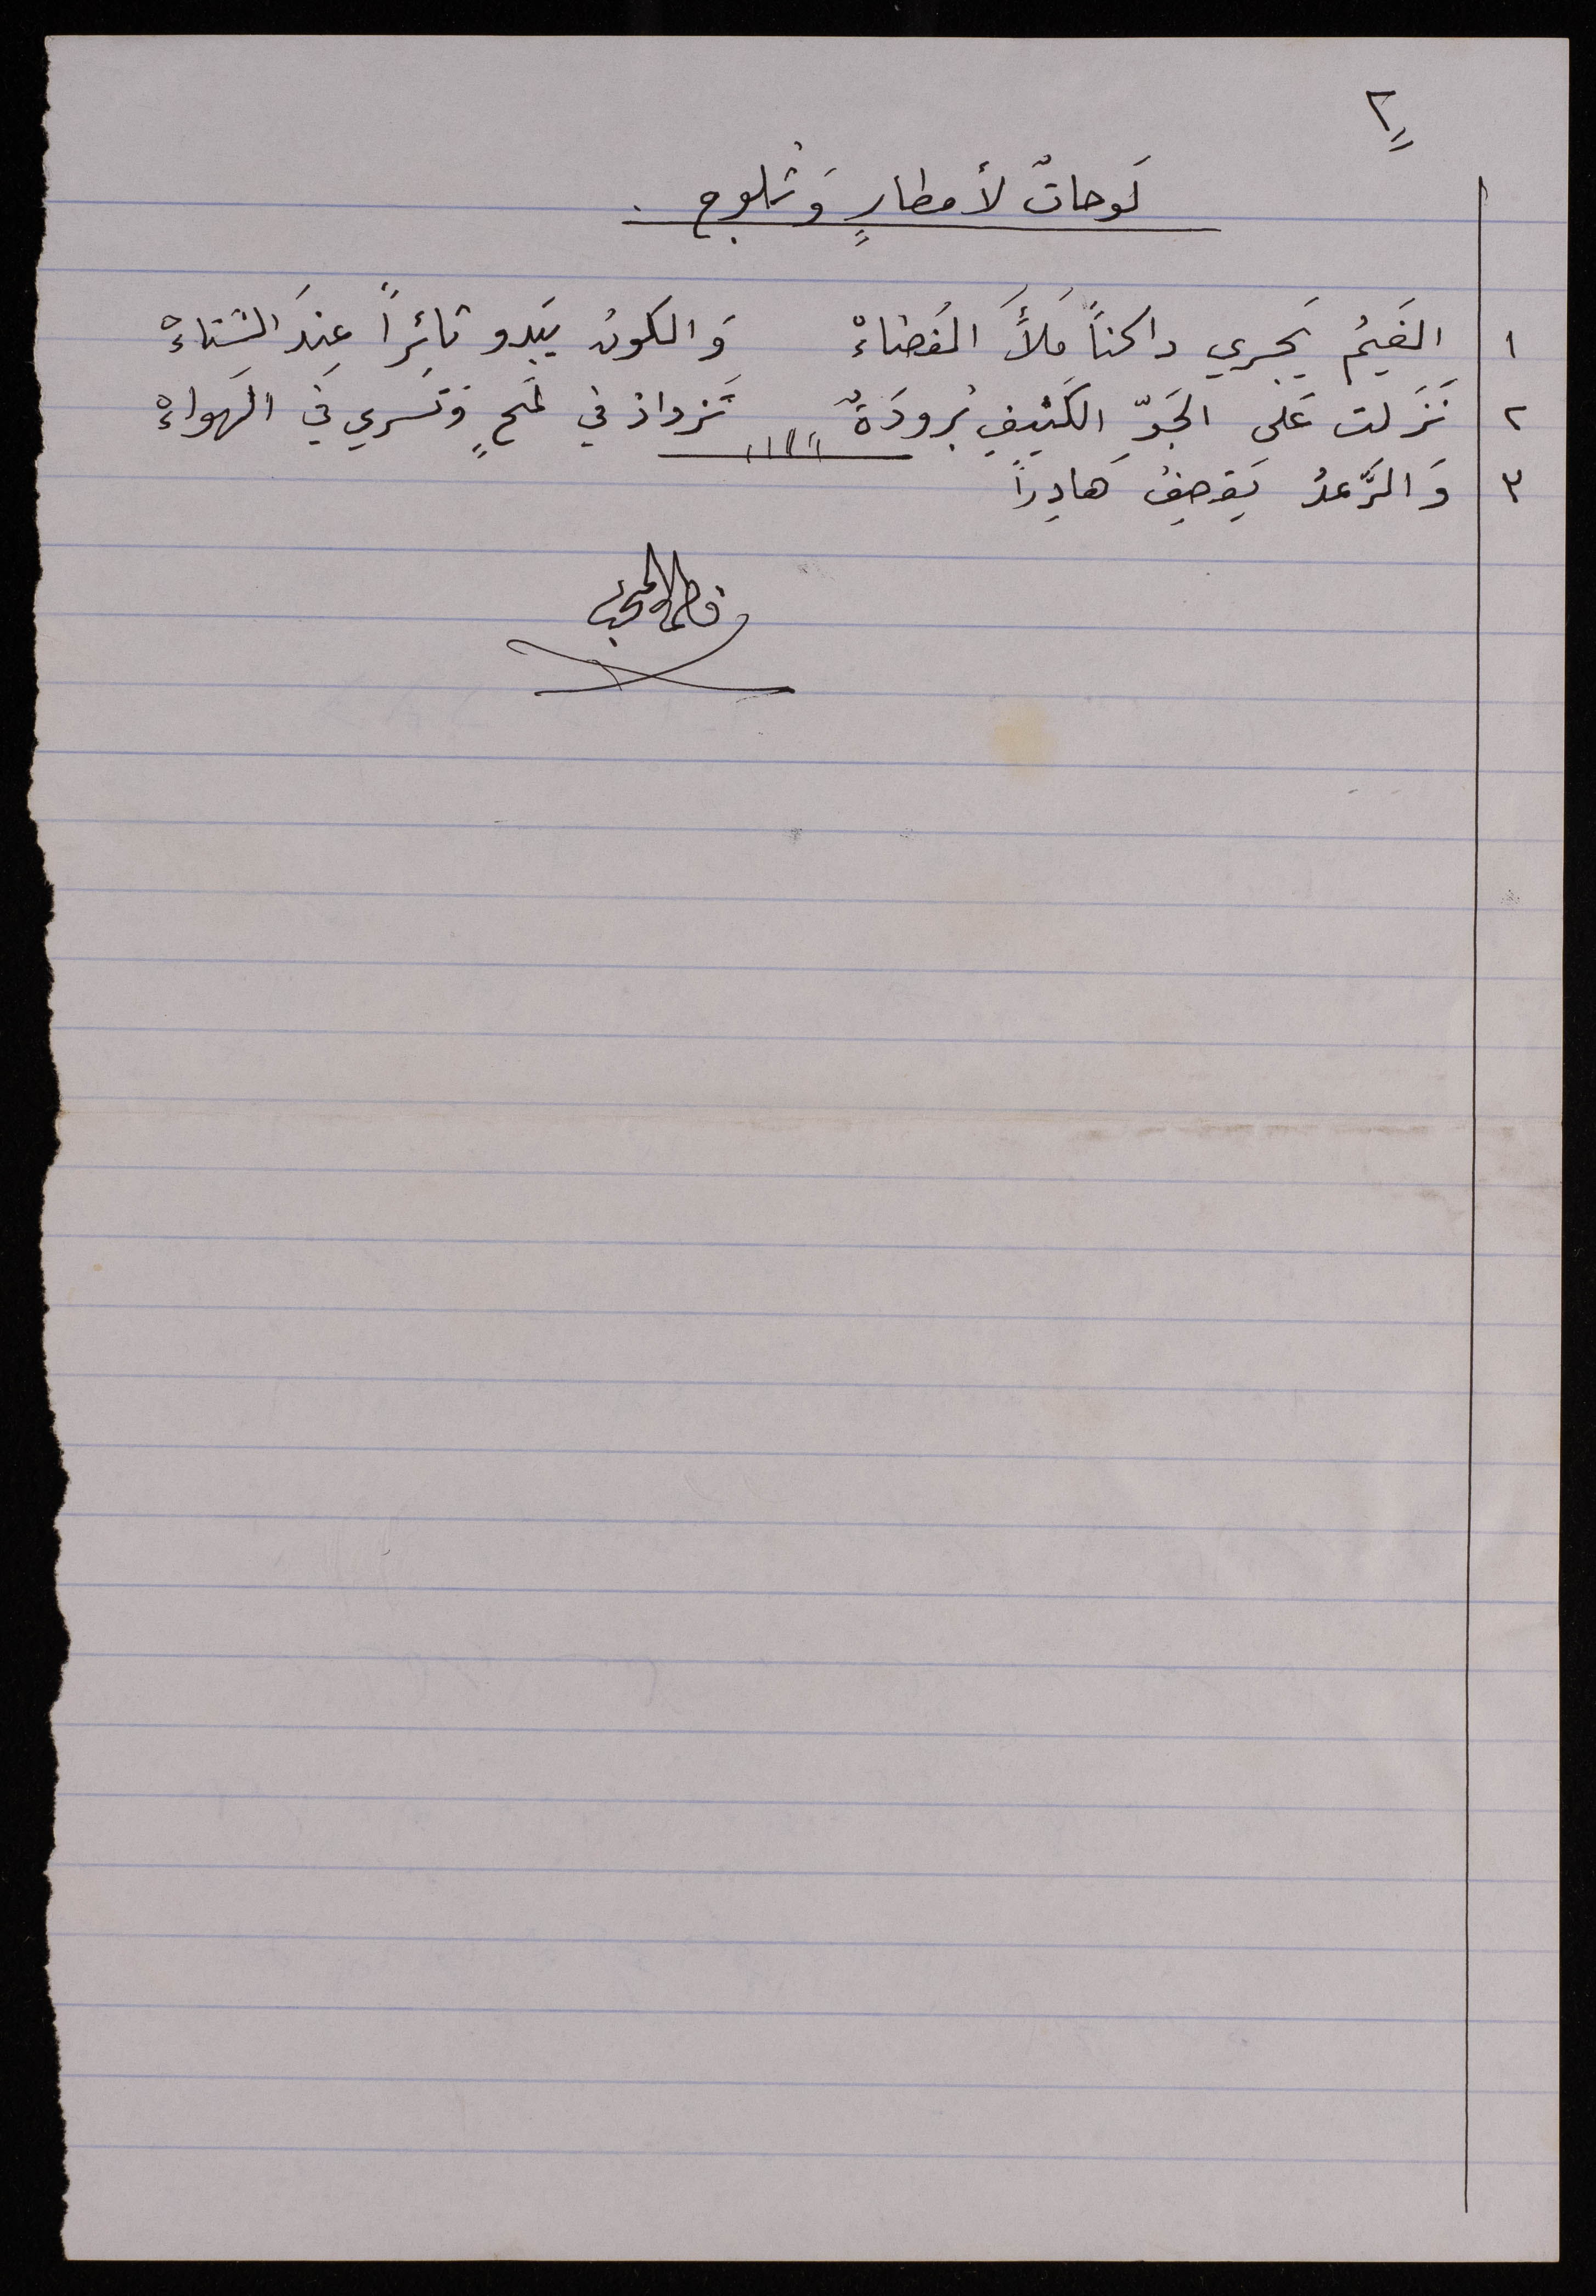 ٢
لَوحاتٌ لأمطارٍ وَثلوجٍ .
١ الغَيمُ يَجري داكناً مَلأَ الفَضاءْ وَالكونُ يَبدو ثائِراً عِندَ الشتاءْ
٢ نَزَلت عَلى الجَوِّ الكَثيفِ بُرودَةٌ تَزدادُ في لمَحٍ وَتَسري في الهَواءْ
٣ وَالرَّعدُ يَقصِفُ هَادِراً